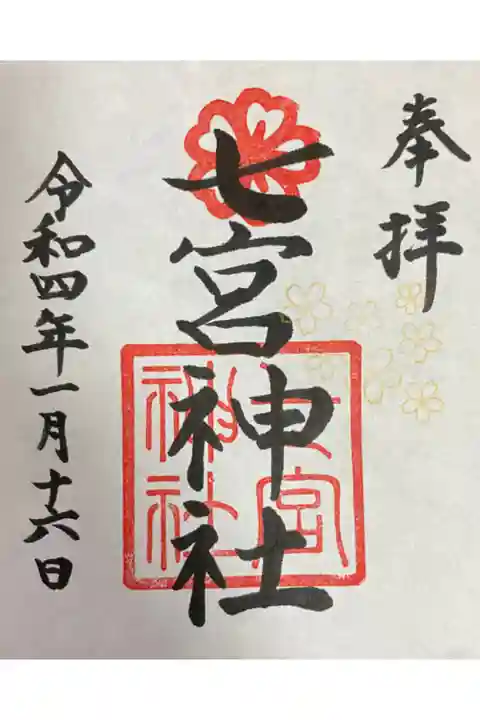 奉拝
七宮神社
七宮
神社
令和四年一月十六日